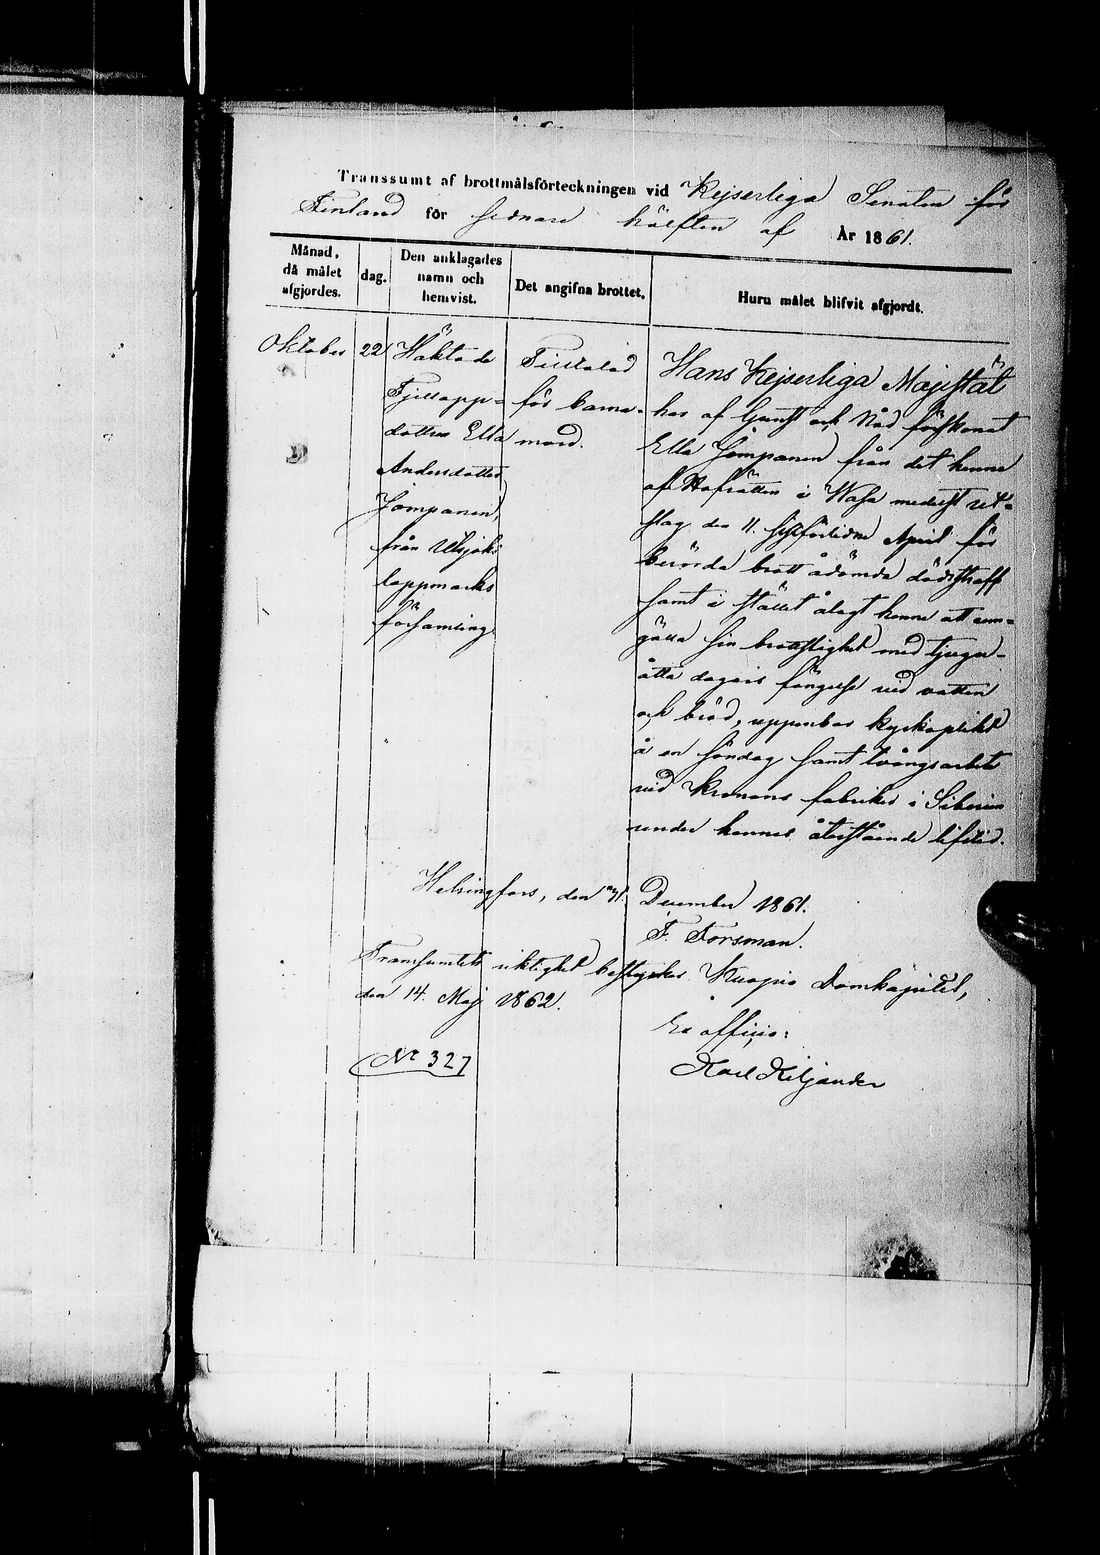 Transsumt af brottmålsförteckningen vid Kejserliga Senaten för
Finland för sednare hälften af År 1861.
Månad,
då målet
afgjordes.
dag.
Den anklagades
namn och
hemvist.
Det angifna brottet.
Huru målet blifvit afgjordt.
Oktober
22
Häktade
Fjellapp-
dottren Ella
Andersdotter
Jomppanen,
från Utsjoki
lappmarks
församling.
Tilltalad
för barna-
mord.
Hans Kejserliga Majestät
har af Gunst och Nåd förskonat
Ella Jomppanen från det henne
af Hofrätten i Wasa medelst ut-
slag den 11. sistförlidne April för
berörda brott ådömda dödsstraff
samt i stället ålagt henne att um-
gälla sin brottslighet med tjugu-
åtta dagars fängelse vid vatten
och bröd, uppenbar kyrkoplikt
å en söndag samt tvångsarbete
vid Kronans fabriker i Siberien
under hennes återstående lifstid.
Helsingfors, den 31 December 1861.
F. Forsman.
Transumtets riktighet bestyrker Kuopio Domkapitel,
den 14. Maj 1862.
Ex officio:
No 327
Karl Kiljander